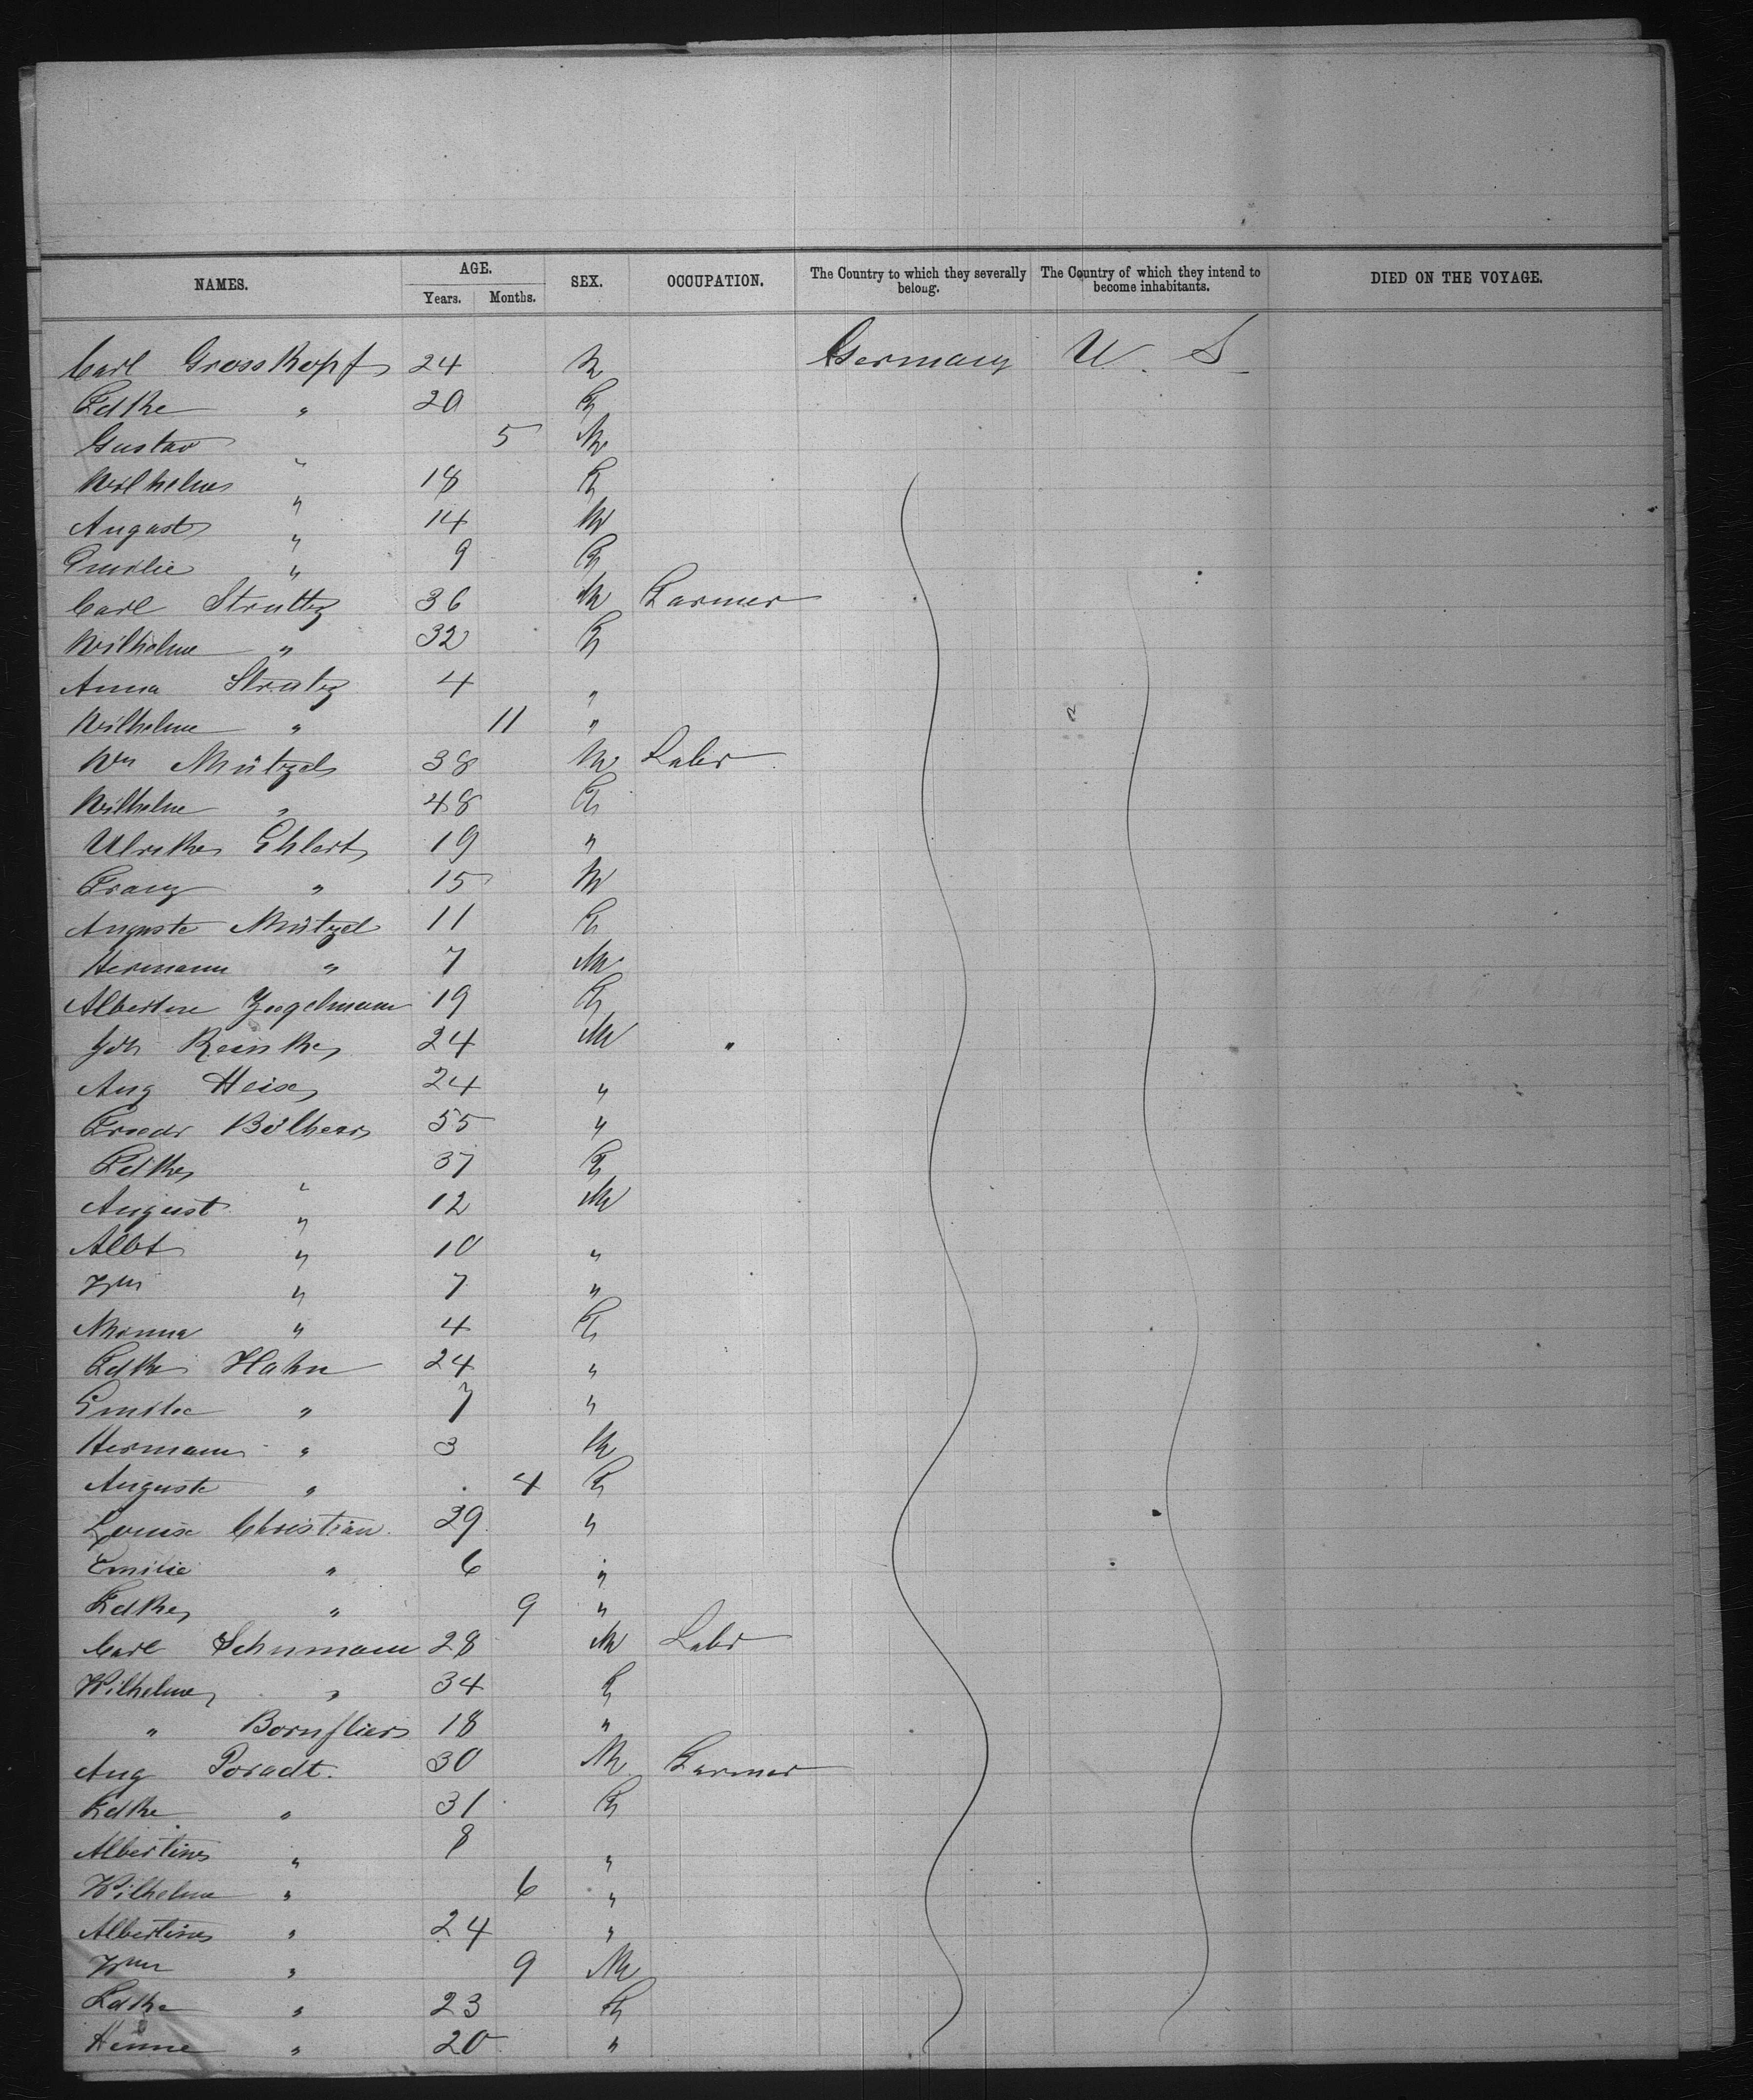 NAMES. AGE. SEX. OCCUPATION. The Country to which they severally belong. The Country of which they intend to become inhabitants. DIED ON THE VOYAGE.
Years. Months.
Carl Grosskopf 24 M Germany U. S.
Fdke " 20 F
Gustav " 5 M
Wilhelme " 18 F
August " 14 M
Emilie " 9 F
Carl Struttz 36 M Farmer
Wilhelme " 32 F
Anna Strutz 4 "
Wilhelme " 11 "
Wm Mützel 38 M Labr
Wilhelme " 48 F
Ulrike Ehlert 19 "
Franz " 15 M
Auguste Mützel 11 F
Hermann " 7 M
Albertine 19 F
Joh Reinke 24 M "
Aug Heise 24 "
Friedr 55 "
Fdke " 37 F
August " 12 M
Albt " 10 "
Wm " 7 "
Minna " 4 F
Fdke Hahn 24 "
Emilie " 7 "
Hermann " 3 M
Auguste " 4 F
Louise Christian 29 "
Emilie " 6 "
Fdke " 9 "
Carl Schumann 28 M Labr
Wilhelme " 34 F
" 18 "
Aug Poradt 30 M Farmer
Fdke " 31 F
Albertine " 8 "
Wilhelme " 6 "
Albertine " 24 "
Wm " 9 M
Fdke " 23 F
" 20 "